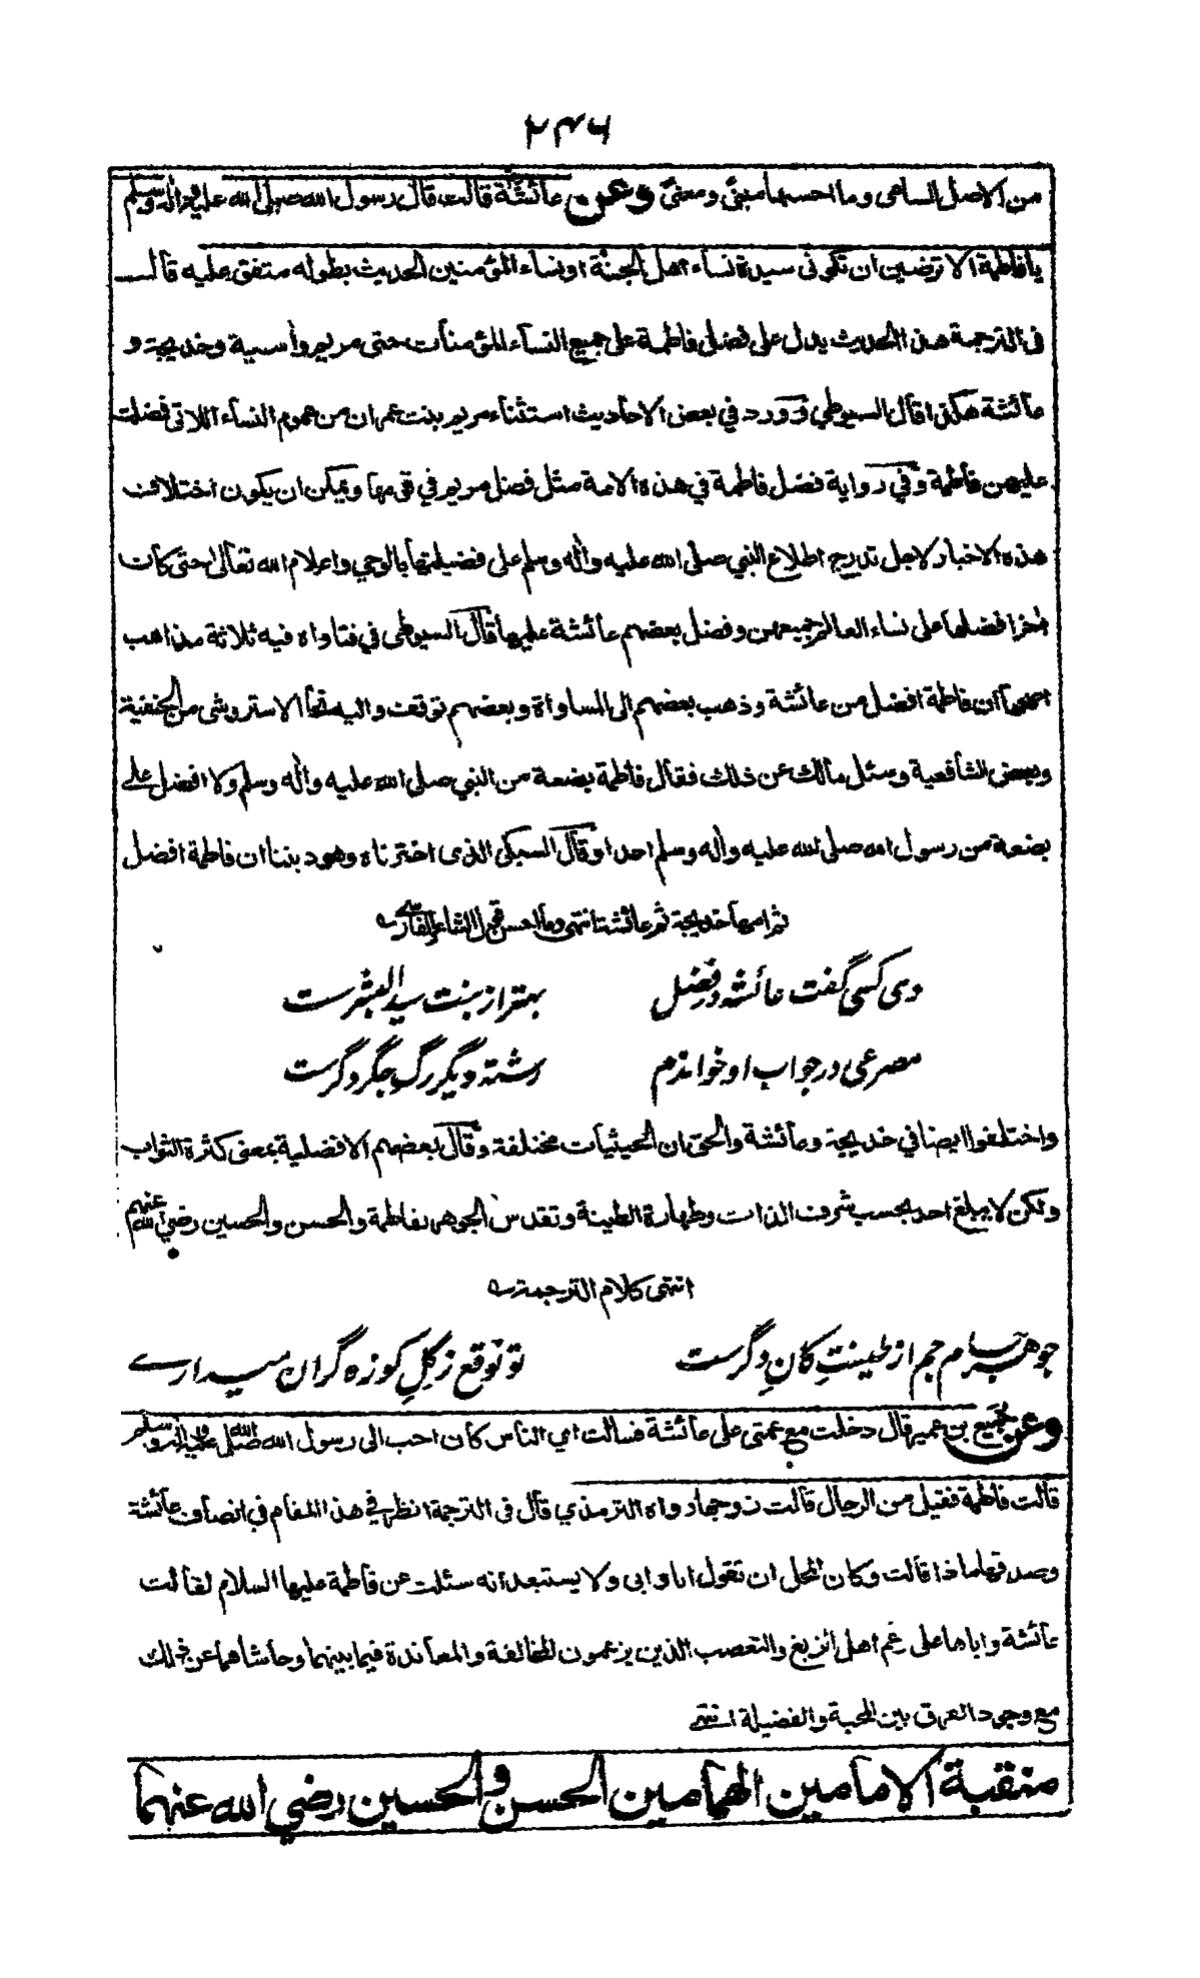 ٢٤٦
من الاصل السامى وما احسنها مبنىً ومعنىً وعن عائشة قالت قال رسول الله صلى الله عليه واله وسلم
يا فاطمة الا ترضين ان تكونى سيدة نساء اهل الجنة او نساء المؤمنين الحديث بطوله متفق عليه قال
فى الترجمة هذا الحديث يدل على فضل فاطمة على جميع النساء المؤمنات حتى مريم وأسية وخديجة و
عائشة هكذا قال السيوطي وورد في بعض الاحاديث استثناء مريم بنت عمران من عموم النساء اللاتى فضلت
عليهن فاطمة وفي رواية فضل فاطمة في هذه الامة مثل فضل مريم في قومها ويمكن ان يكون اختلاف
هذه الاخبار لاجل تدريج اطلاع النبي صلى الله عليه وأله وسلم على فضيلتها بالوحي واعلام الله تعالى حتى كان
اخرا فضلها على نساء العالم جميعهن وفضل بعضهم عائشة عليها قال السيوطى في فتاواه فيه ثلاثة مذاهب
اصحها ان فاطمة افضل من عائشة وذهب بعضهم الى المساواة وبعضهم توقف واليه الاستروشى من الحنفية
وبعض الشافعية وسئل مالك عن ذلك فقال فاطمة بضعة من النبي صلى الله عليه وأله وسلم ولا افضل على
بضعة من رسول الله صلى الله عليه وأله وسلم احدا وقال السبكى الذى اخترناه وهو ديننا ان فاطمة افضل
ثم امها خديجة ثم عائشة انتهى وما احسن قول الشاعر الفارسى
دى كسى گفت عائشه در فضل بهتر از بنت سيد البشرست
مصرعى در جواب او خواندم رشته ديگر رگ جگر دگرست
واختلفوا ايضا في خديجة وعائشة والحق ان الحيثيات مختلفة وقال بعضهم الافضلية بمعنى كثرة الثواب
ولكن لا يبلغ احد بحسب شرف الذات وطهارة الطينة وتقدس الجوهر بفاطمة والحسن والحسين رضي الله عنهم
انتهى كلام الترجمة
جوهر جام جم از طينتِ كانِ دگرست تو توقع ز گلِ كوزه گران ميدارے
وعن جميع بن عمير قال دخلت مع عمتى على عائشة فسالت اي الناس كان احب الى رسول الله صلى الله عليه واله وسلم
قالت فاطمة فقيل من الرجال قالت زوجها رواه الترمذي قال فى الترجمة انظر في هذا المقام في انصاف عائشة
وصدقها ماذا قالت وكان المحل ان تقول انا وابى ولا يستبعد انه سئلت عن فاطمة عليها السلام لقالت
عائشة واباها على رغم اهل الزيغ والتعصب الذين يزعمون المخالفة والمعاندة فيما بينهما وحاشاهما عن ذلك
مع وجود الفرق بين المحبة والفضيلة انتهى
منقبة الامامين الهمامين الحسن والحسين رضي الله عنهما